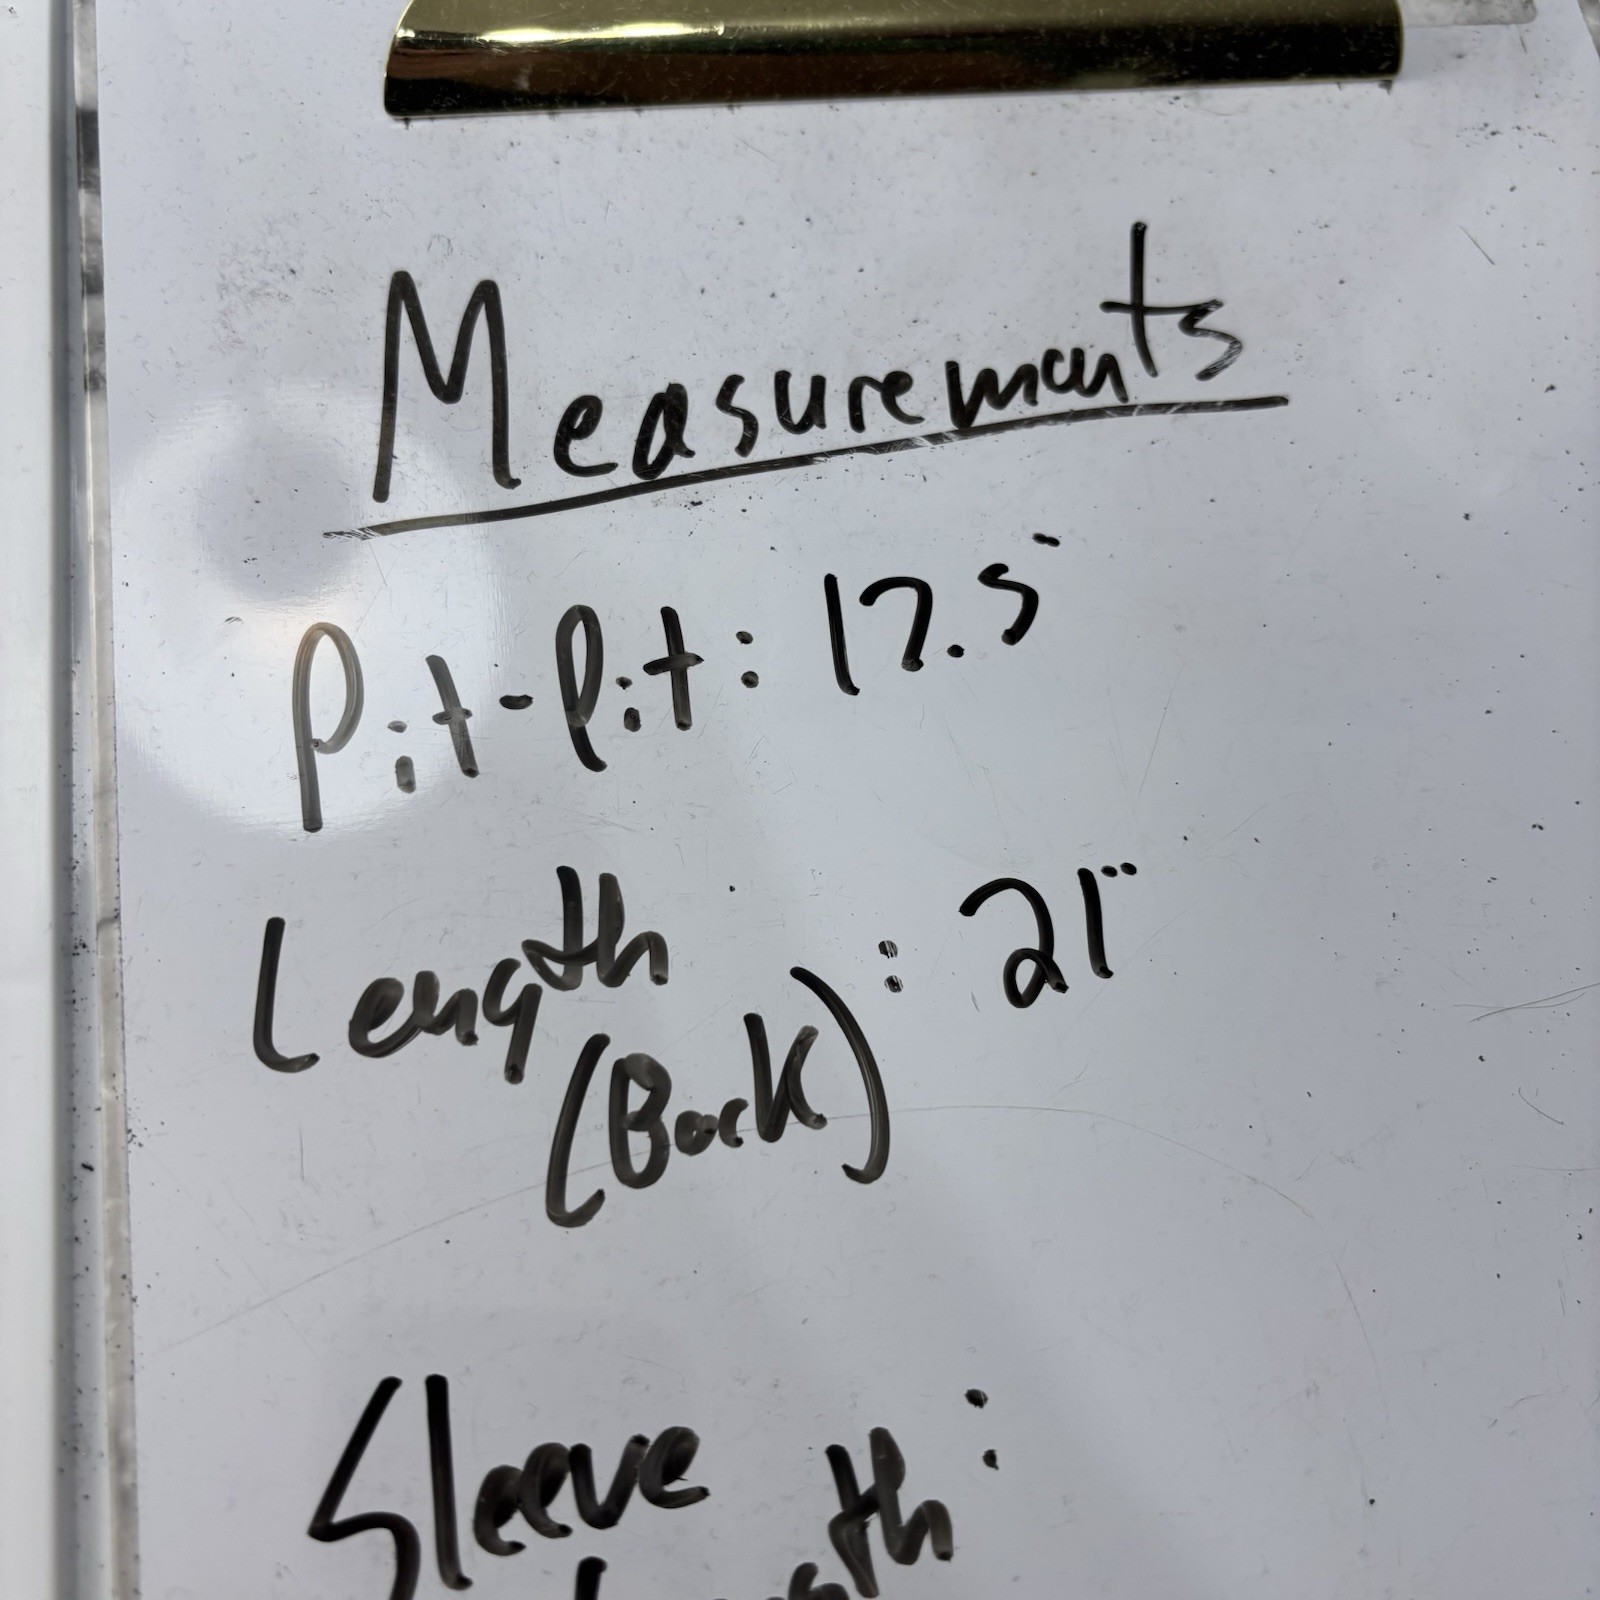 Measurements
Pit-Pit: 17.5"
Length
(Back): 21"
Sleeve
Length: